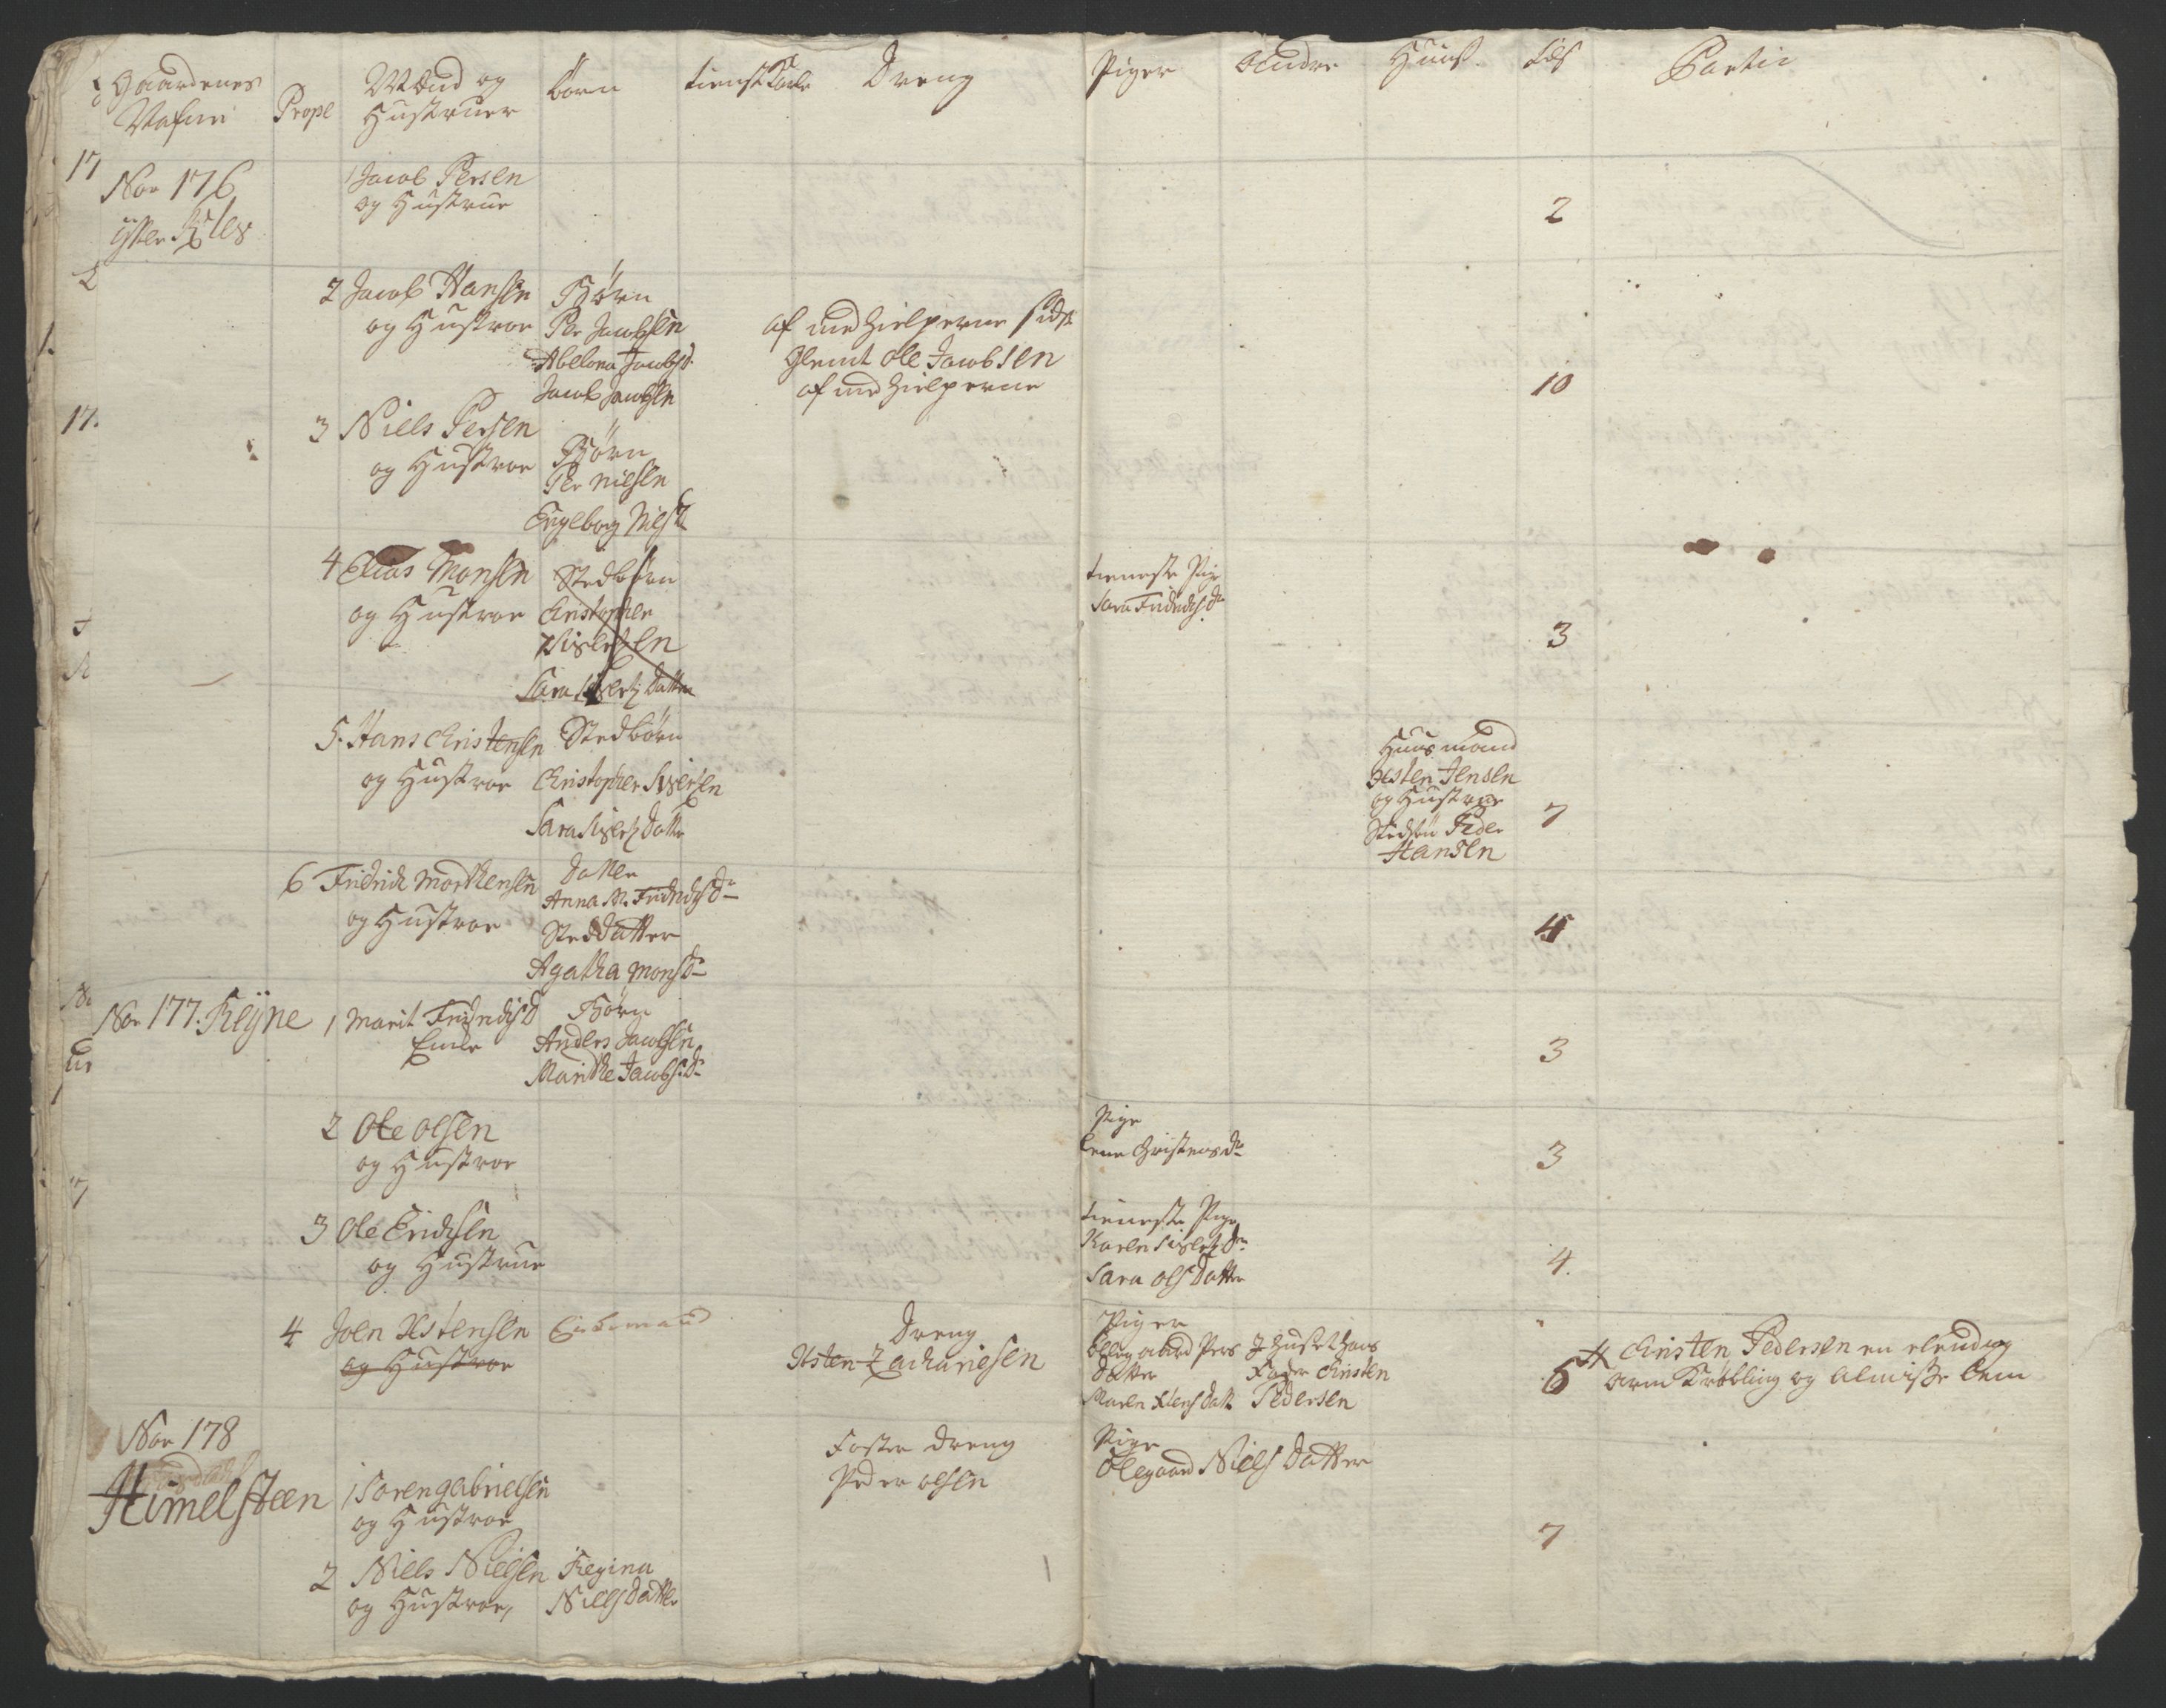 Gaardenes
Nafne
Prope
Mænd og
Hustruer
børn
tienst Karle
Dreng
Piger
andre
Huus
Partie
17
Nor 176
ytter
1 Jacob Persen
og Hustrue
2
2 Jacob Hansen
og Hustroe
Børn
Per Jacobsen
Abelona Jacobsd.
Jacob Jacobsen
af med hielperne sidst
Glemt Ole Jacobsen
af med hielperne
10
17.
3 Niels Persen
og Hustroe
Børn
Per Nielsen
Engeborg Nielsd
4 Elias Monsen
og Hustroe
Stedbørn
Christopher
Siversen
Sara Siversdatter
tieneste Pige
Sara Fridrichsdr
3
5. Hans Christensen
og Hustroe
Stedbørn
Christopher Siversen
Sara Sivers Datter
Huusmand
Østen Jensen
og Hustroe
Stedsøn Peder
Hansen
7
6 Fridrich Morthensen
og Hustroe
Datter
Anna M. Fridrichsdr
Steddatter
Agatha Monsdr
4
Nor 177. Røyne
1 Marit Fridrichsd
Encke
Børn
Anders Jacobsen
Marithe Jacobsdr
3
2 Ole Olsen
og Hustroe
Pige
Lene Christensdr
3
3 Ole Erichsen
og Hustrue
tieneste Pige
Karen Siversdr
Sara Olsdatter
4.
4 Joen Østensen
og Hustroe
Enkemand
Dreng
Østen Zachariesen
Piger
Olleg aard Pers
datter
Maren Elensdatt
I Huset hans
Fader Christen
Pedersen
6
# Christen Pedersen en elendig
arm Krøbling og almisse Lem
Nor 178
Himelsteen
1 Soren Gabrielsen
og Hustroe
Foster dreng
Peder Olsen
Pige
Olegaard Niels Datter
7
2 Niels Nielsen
og Hustroe,
Regina
Niels datter